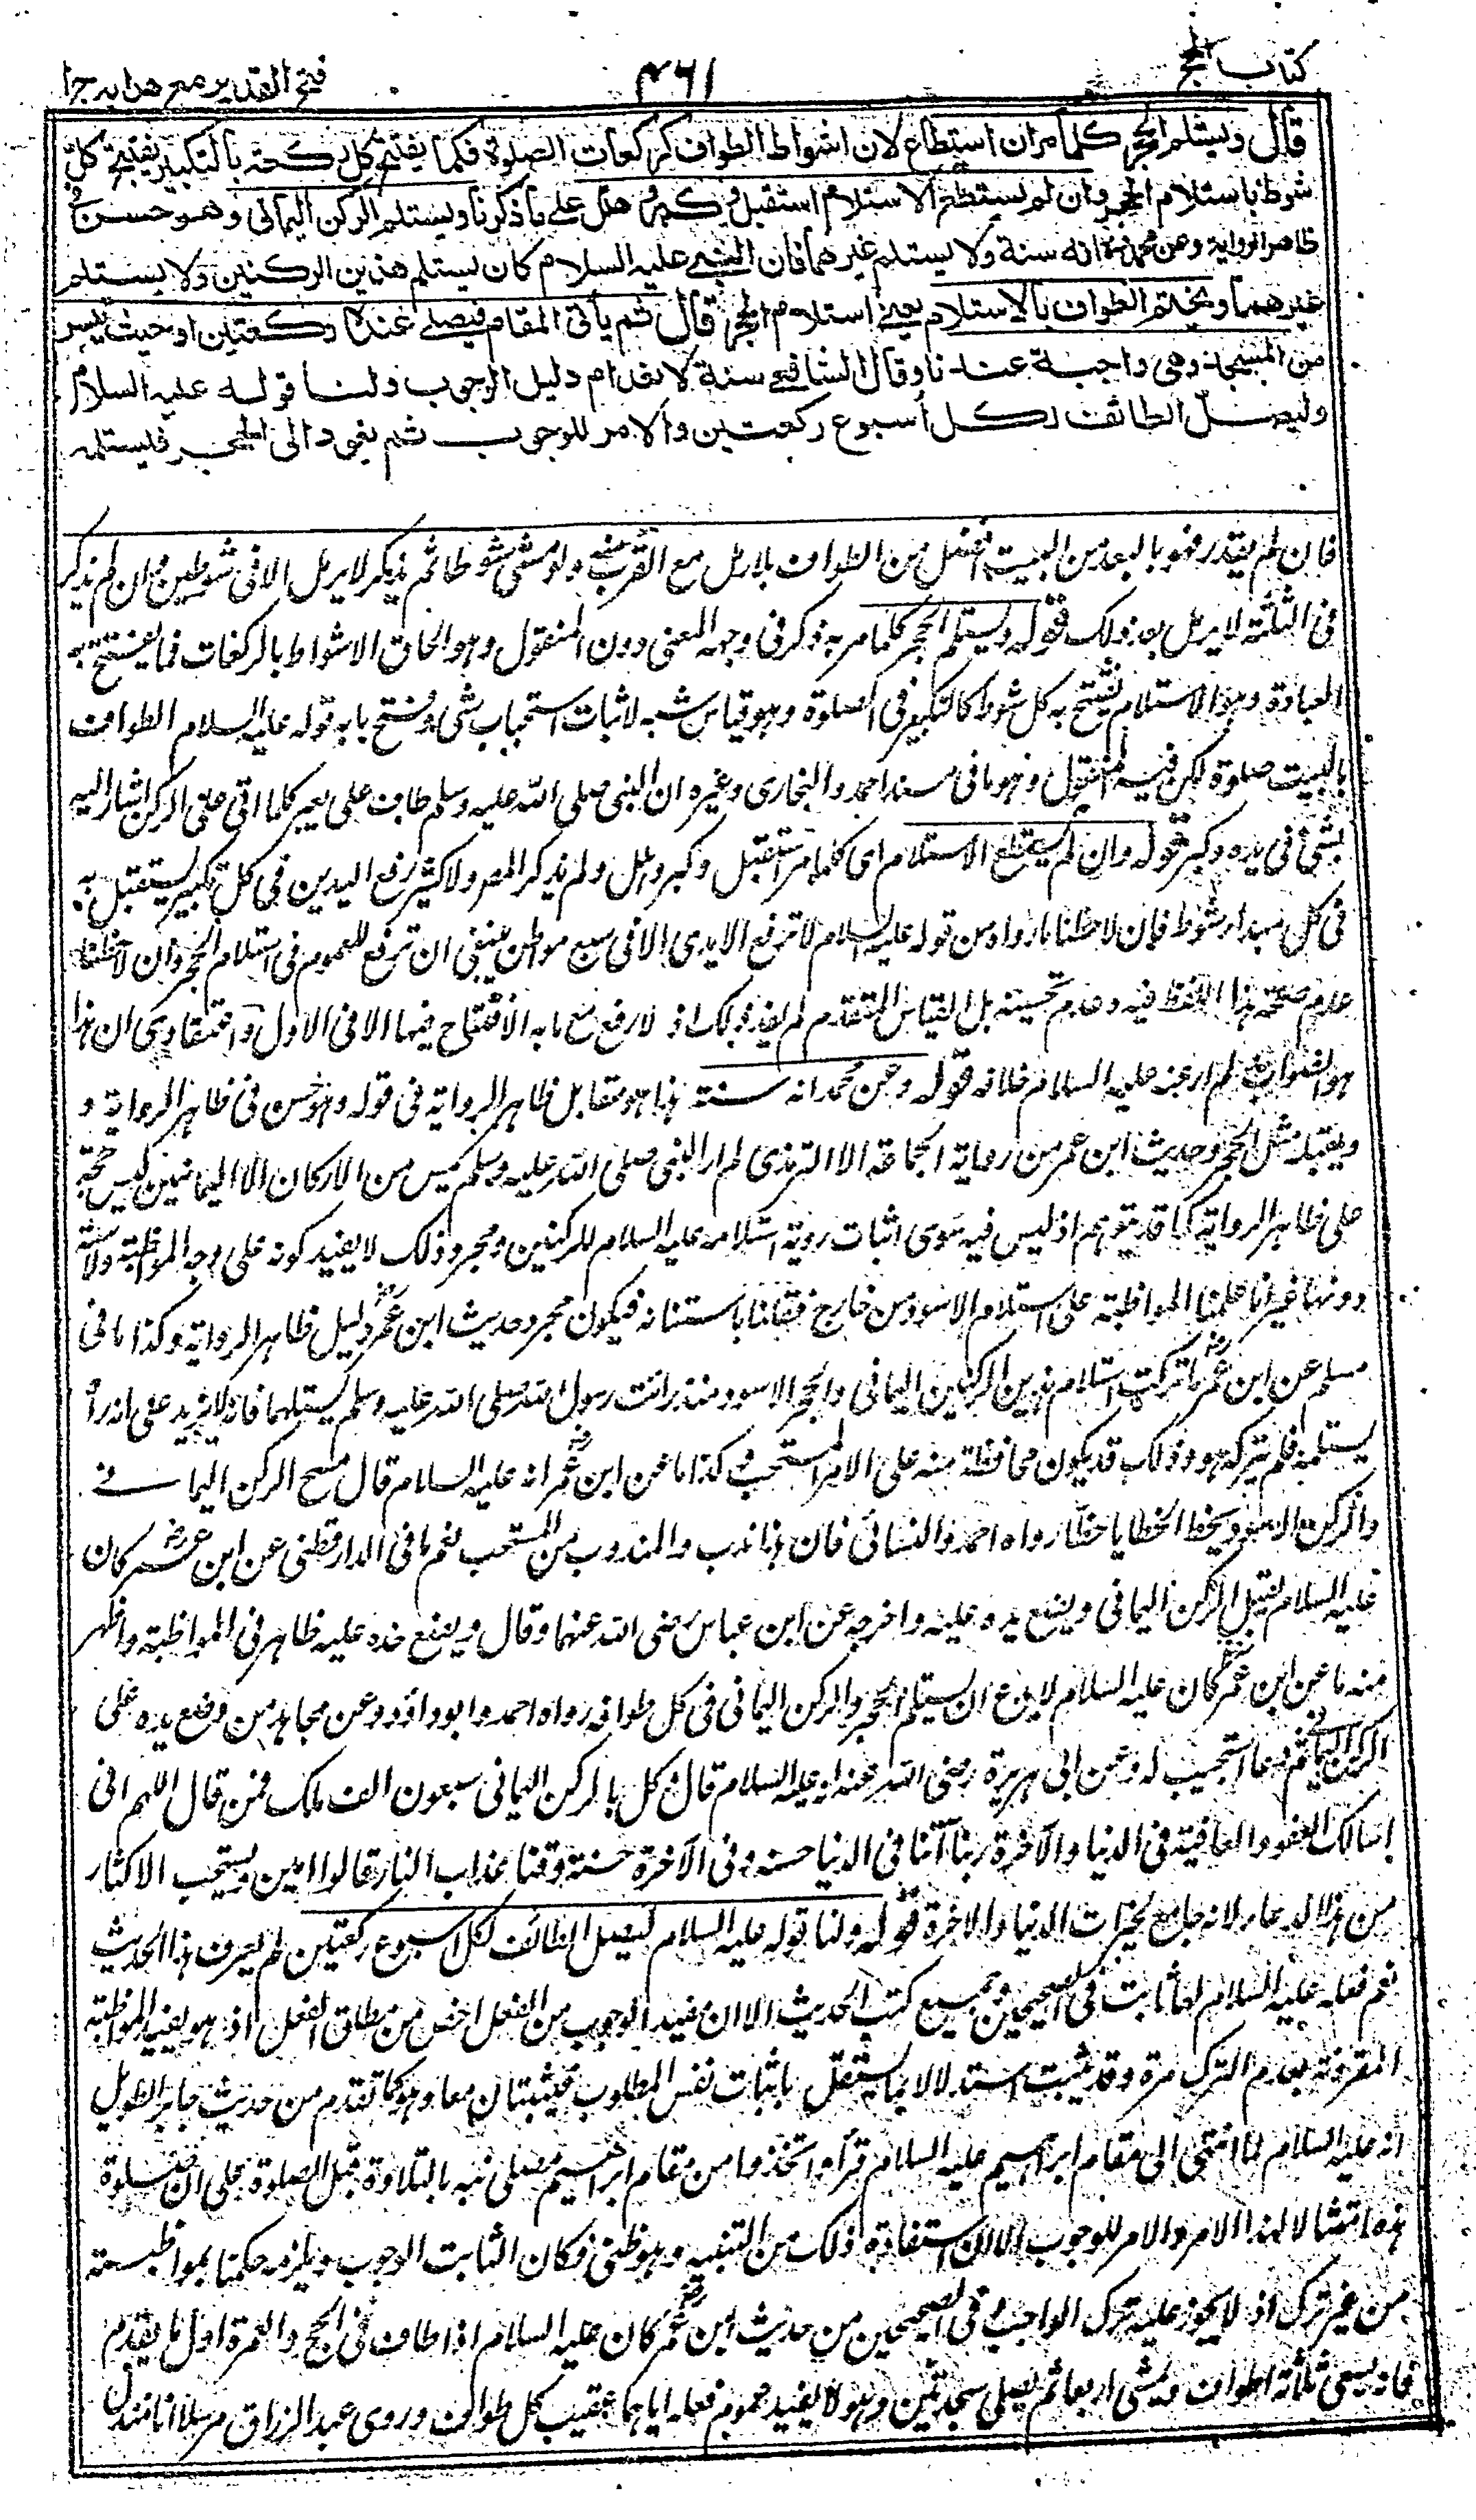 كتاب الحج ٣٦١ فتح القدير مع هدايه ج١
قال ويستلم الحجر كلما مر ان استطاع لان اشواط الطواف كركعات الصلوة فكما يفتتح كل ركعة بالتكبير يفتتح كل
شوط باستلام الحجر وان لم يستطع الاستلام استقبل وكبر وهلل على ما ذكرنا ويستلم الركن اليماني وهو حسن في
ظاهر الرواية وعن محمد انه سنة ولا يستلم غيرهما فان النبي عليه السلام كان يستلم هذين الركنين ولا يستلم
غيرهما ويختم الطواف بالاستلام يعني استلام الحجر قال ثم يأتي المقام فيصلي عنده ركعتين او حيث تيسر
من المسجد وهي واجبة عندنا وقال الشافعي سنة لانعدام دليل الوجوب ولنا قوله عليه السلام
وليصل الطائف لكل أسبوع ركعتين والامر للوجوب ثم يعود الى الحجر فيستلمه
فان لم يقدر فهو بالبعد من البيت افضل من الطواف بلا رمل مع القرب منه ولو مشى شوطا ثم تذكر لا يرمل الا في شوطين وان لم يذكر
في الثلثة لا يرمل بعد ذلك قوله ويستلم الحجر كلما مر به ذكر في وجهه المعنى دون المنقول وهو الحاق الاشواط بالركعات فما يفتتح به
العبادة وهو الاستلام يفتتح به كل شوط كالتكبير في الصلوة وهو قياس شبه لاثبات استحباب شئ وفتح بابه قوله عليه السلام الطواف
بالبيت صلوة لكن فيه المنقول وهو ما في مسند احمد والبخاري وغيره ان النبي صلى الله عليه وسلم طاف على بعير كلما اتى على الركن اشار اليه
بشئ في يده وكبر قوله وان لم يستطع الاستلام اى كلما مر استقبل وكبر وهلل ولم يذكر المص ولا كثير رفع اليدين في كل تكبير يستقبل به
في كل مبدأ شوط فان لاحظنا ما رواه من قوله عليه السلام لا ترفع الايدي الا في سبع مواطن ينبغي ان ترفع للعموم في استلام الحجر وان لاحظنا
عدم صحة هذا اللفظ فيه وعدم تحسينه بل القياس المتقدم لم يفد ذلك اذ لا رفع مع ما به الافتتاح فيها الا في الاول واعتقادى ان هذا
هو الصواب ولم ار عنه عليه السلام خلافه قوله وعن محمد انه سنة هذا هو مقابل ظاهر الرواية في قوله وهو حسن في ظاهر الرواية و
ويقبله مثل الحجر وحديث ابن عمر من رواية الجماعة الا الترمذي لم ار النبي صلى الله عليه وسلم يمس من الاركان الا اليمانيين ليس حجة
على ظاهر الرواية كما قد يتوهم اذ ليس فيه سوى اثبات رؤية استلامه عليه السلام للركنين ومجرد ذلك لا يفيد كونه على وجه المواظبة ولا سنة
دونها غير انا علمنا المواظبة على استلام الاسود من خارج فقلنا باستنانه فيكون مجرد حديث ابن عمر دليل ظاهر الرواية وكذا ما في
مسلم عن ابن عمر ما تركت استلام هذين الركنين اليماني والحجر الاسود منذ رأيت رسول الله صلى الله عليه وسلم يستلمهما فانه لا يزيد على انه رأه
يستلمه فلم يتركه هو وذلك قد يكون محافظة منه على الامر المستحب وكذا ما عن ابن عمر انه عليه السلام قال مسح الركن اليماني
والركن الاسود يحط الخطايا حطا رواه احمد والنسائي فان هذا ندب والمندوب من المستحب نعم ما في الدارقطني عن ابن عمر كان
عليه السلام يقبل الركن اليماني ويضع يده عليه واخرجه عن ابن عباس رضي الله عنهما وقال ويضع خده عليه ظاهر في المواظبة واظهر
منه ما عن ابن عمر كان عليه السلام لا يدع ان يستلم الحجر والركن اليماني في كل طوافه رواه احمد وابو داؤد وعن مجاهد من وضع يده على
الركن اليماني ثم دعا استجيب له وعن ابي هريرة رضي الله عنه انه عليه السلام قال وكل بالركن اليماني سبعون الف ملك فمن قال اللهم اني
اسالك العفو والعافية في الدنيا والآخرة ربنا آتنا في الدنيا حسنة وفي الآخرة حسنة وقنا عذاب النار قالوا امين ويستحب الاكثار
من هذا الدعاء لانه جامع لخيرات الدنيا والاخرة قوله ولنا قوله عليه السلام ليصل الطائف لكل اسبوع ركعتين لم يعرف هذا الحديث
نعم فعله عليه السلام لها ثابت في الصحيحين وجميع كتب الحديث الا ان مفيد الوجوب من الفعل اخص من مطلق الفعل اذ هو يفيد المواظبة
المقرونة بعدم الترك مرة وقد يثبت استدلالا بما يستقل باثبات نفس المطلوب فيثبتان معا وهو كما تقدم من حديث جابر الطويل
انه عليه السلام لما انتهى الى مقام ابراهيم عليه السلام قرأ واتخذوا من مقام ابراهيم مصلى نبه بالتلاوة قبل الصلوة على ان صلوة
هذه امتثالا لهذا الامر والامر للوجوب الا ان استفادة ذلك من التنبيه وهو ظني فكان الثابت الوجوب ويلزمه حكمنا بمواظبته
من غير ترك اذ لا يجوز عليه ترك الواجب وفي الصحيحين من حديث ابن عمر كان عليه السلام اذا طاف في الحج والعمرة اول ما يقدم
فانه يسعى ثلاثة اطواف ويمشي اربعا ثم يصلي سجدتين وهو لا يفيد عموم فعله اياهما عقيب كل طواف وروى عبد الرزاق مرسلا انا مندل